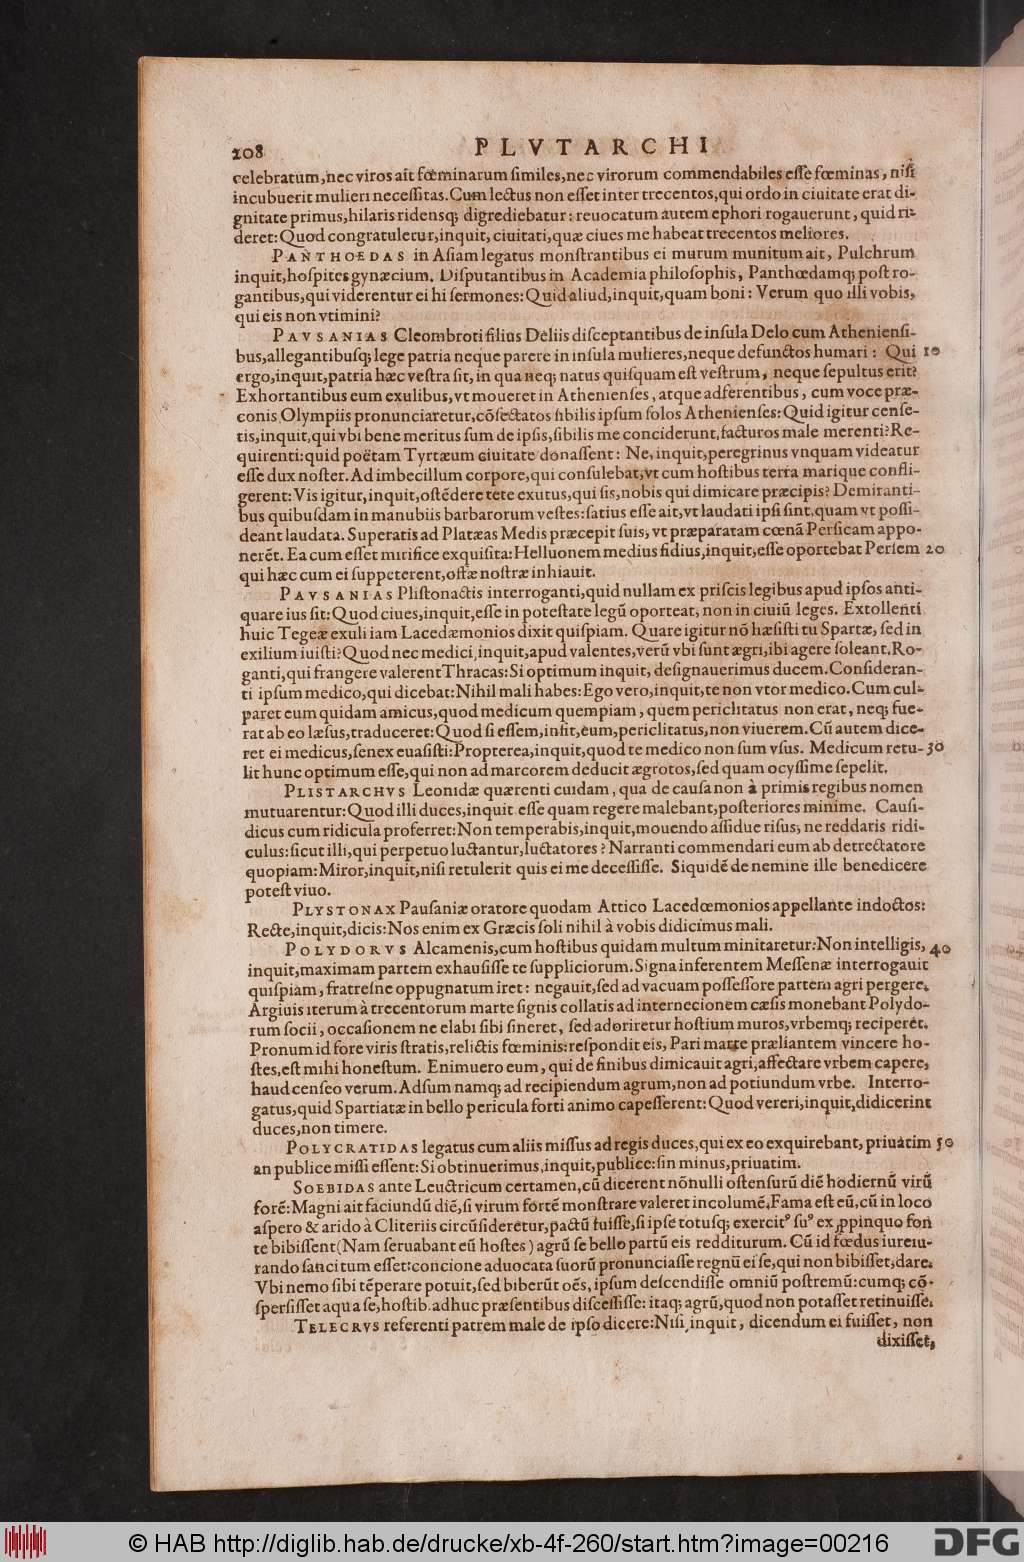 208 PLVTARCHI
celebratum, nec viros ait fœminarum ſimiles, nec virorum commendabiles eſſe fœminas, niſi
incubuerit mulieri neceſſitas. Cum lectus non eſſet inter trecentos, qui ordo in ciuitate erat di-
gnitate primus, hilaris ridensq; digrediebatur: reuocatum autem ephori rogauerunt, quid ri-
deret: Quod congratuletur, inquit, ciuitati, quæ ciues me habeat trecentos meliores.
PANTHOEDAS in Aſiam legatus monſtrantibus ei murum munitum ait, Pulchrum
inquit, hoſpites gynæcium. Diſputantibus in Academia philoſophis, Panthœdamq; poſt ro-
gantibus, qui viderentur ei hi ſermones: Quid aliud, inquit, quam boni: Verum quo illi vobis,
qui eis non vtimini?
PAVSANIAS Cleombroti filius Deliis diſceptantibus de inſula Delo cum Athenienſi-
bus, allegantibuſq; lege patria neque parere in inſula mulieres, neque defunctos humari: Qui 10
ergo, inquit, patria hæc veſtra ſit, in qua neq; natus quiſquam eſt veſtrum, neque ſepultus erit?
Exhortantibus eum exulibus, vt moueret in Athenienſes, atque adferentibus, cum voce præ-
conis Olympiis pronunciaretur, cōſectatos ſibilis ipſum ſolos Athenienſes: Quid igitur cenſe-
tis, inquit, qui vbi bene meritus ſum de ipſis, ſibilis me conciderunt, facturos male merenti? Re-
quirenti: quid poëtam Tyrtæum ciuitate donaſſent: Ne, inquit, peregrinus vnquam videatur
eſſe dux noſter. Ad imbecillum corpore, qui conſulebat, vt cum hoſtibus terra marique confli-
gerent: Vis igitur, inquit, oſtēdere tete exutus, qui ſis, nobis qui dimicare præcipis? Demiranti-
bus quibuſdam in manubiis barbarorum veſtes: ſatius eſſe ait, vt laudati ipſi ſint, quam vt poſſi-
deant laudata. Superatis ad Platæas Medis præcepit ſuis, vt præparatam cœnā Perſicam appo-
nerēt. Ea cum eſſet mirifice exquiſita: Helluonem medius fidius, inquit, eſſe oportebat Perſem 20
qui hæc cum ei ſuppeterent, offæ noſtræ inhiauit.
PAVSANIAS Pliſtonactis interroganti, quid nullam ex priſcis legibus apud ipſos anti-
quare ius ſit: Quod ciues, inquit, eſſe in poteſtate legū oporteat, non in ciuiū leges. Extollenti
huic Tegeæ exuli iam Lacedæmonios dixit quiſpiam. Quare igitur nō hæſiſti tu Spartæ, ſed in
exilium iuiſti? Quod nec medici, inquit, apud valentes, verū vbi ſunt ægri, ibi agere ſoleant. Ro-
ganti, qui frangere valerent Thracas: Si optimum inquit, deſignauerimus ducem. Conſideran-
ti ipſum medico, qui dicebat: Nihil mali habes: Ego vero, inquit, te non vtor medico. Cum cul-
paret eum quidam amicus, quod medicum quempiam, quem periclitatus non erat, neq; fue-
rat ab eo læſus, traduceret: Quod ſi eſſem, inſit, eum, periclitatus, non viuerem. Cū autem dice-
ret ei medicus, ſenex euaſiſti: Propterea, inquit, quod te medico non ſum vſus. Medicum retu- 30
lit hunc optimum eſſe, qui non ad marcorem deducit ægrotos, ſed quam ocyſſime ſepelit.
PLISTARCHVS Leonidæ quærenti cuidam, qua de cauſa non à primis regibus nomen
mutuarentur: Quod illi duces, inquit eſſe quam regere malebant, poſteriores minime. Cauſi-
dicus cum ridicula proferret: Non temperabis, inquit, mouendo aſſidue riſus, ne reddaris ridi-
culus: ſicut illi, qui perpetuo luctantur, luctatores? Narranti commendari eum ab detrectatore
quopiam: Miror, inquit, niſi retulerit quis ei me deceſſiſſe. Siquidē de nemine ille benedicere
poteſt viuo.
PLYSTONAX Pauſaniæ oratore quodam Attico Lacedœmonios appellante indoctos:
Recte, inquit, dicis: Nos enim ex Græcis ſoli nihil à vobis didicimus mali.
POLYDORVS Alcamenis, cum hoſtibus quidam multum minitaretur: Non intelligis, 40
inquit, maximam partem exhauſiſſe te ſuppliciorum. Signa inferentem Meſſenæ interrogauit
quiſpiam, fratreſne oppugnatum iret: negauit, ſed ad vacuam poſſeſſore partem agri pergere.
Argiuis iterum à trecentorum marte ſignis collatis ad internecionem cæſis monebant Polydo-
rum ſocii, occaſionem ne elabi ſibi ſineret, ſed adoriretur hoſtium muros, vrbemq; reciperet.
Pronum id fore viris ſtratis, relictis fœminis: reſpondit eis, Pari marte præliantem vincere ho-
ſtes, eſt mihi honeſtum. Enimuero eum, qui de finibus dimicauit agri, affectare vrbem capere,
haud cenſeo verum. Adſum namq; ad recipiendum agrum, non ad potiundum vrbe. Interro-
gatus, quid Spartiatæ in bello pericula forti animo capeſſerent: Quod vereri, inquit, didicerint
duces, non timere.
POLYCRATIDAS legatus cum aliis miſſus ad regis duces, qui ex eo exquirebant, priuatim 50
an publice miſſi eſſent: Si obtinuerimus, inquit, publice: ſin minus, priuatim.
SOEBIDAS ante Leuctricum certamen, cū dicerent nōnulli oſtenſurū diē hodiernū virū
forē: Magni ait faciundū diē, ſi virum fortē monſtrare valeret incolumē. Fama eſt eū, cū in loco
aſpero & arido à Cliteriis circūſideretur, pactū fuiſſe, ſi ipſe totuſq; exercitꝰ ſuꝰ ex ꝓpinquo fon
te bibiſſent (Nam ſeruabant eū hoſtes) agrū ſe bello partū eis redditurum. Cū id fœdus iureiu-
rando ſancitum eſſet: concione aduocata ſuorū pronunciaſſe regnū ei ſe, qui non bibiſſet, dare.
Vbi nemo ſibi tēperare potuit, ſed biberūt oēs, ipſum deſcendiſſe omniū poſtremū: cumq; cō-
ſperſiſſet aqua ſe, hoſtib. adhuc præſentibus diſceſſiſſe: itaq; agrū, quod non potaſſet retinuiſſe.
TELECRVS referenti patrem male de ipſo dicere: Niſi, inquit, dicendum ei fuiſſet, non
dixiſſet,
© HAB http://diglib.hab.de/drucke/xb-4f-260/start.htm?image=00216 DFG